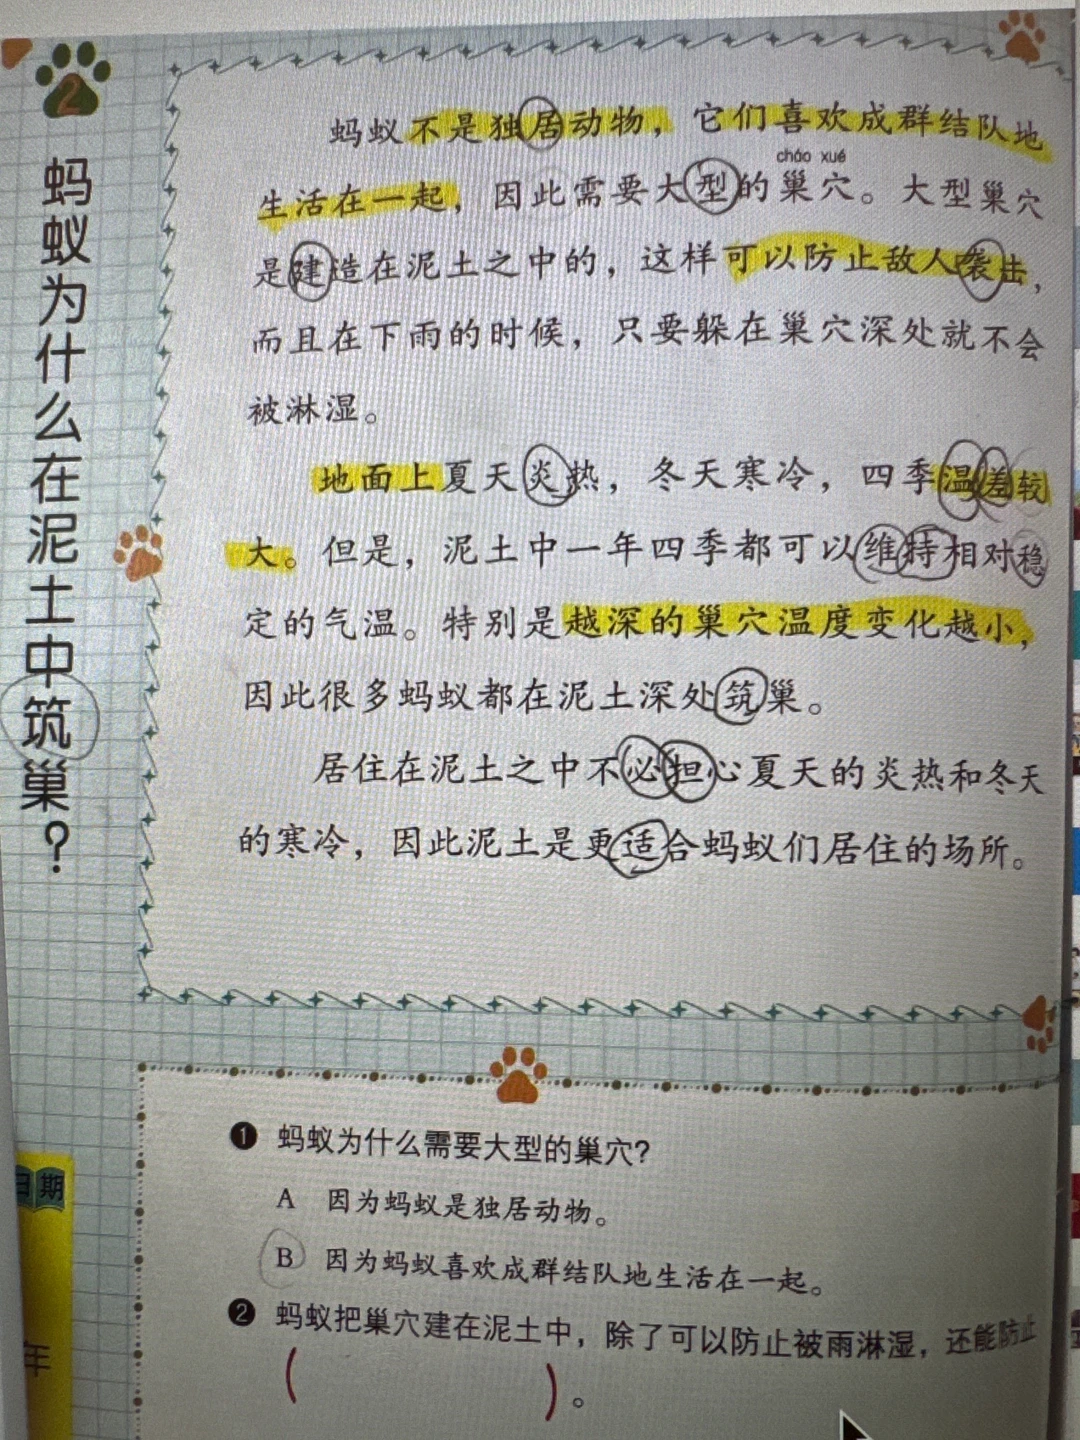 2
蚂蚁为什么在泥土中筑巢？
蚂蚁不是独居动物，它们喜欢成群结队地
cháo xué
生活在一起，因此需要大型的巢穴。大型巢穴
是建造在泥土之中的，这样可以防止敌人袭击，
而且在下雨的时候，只要躲在巢穴深处就不会
被淋湿。
地面上夏天炎热，冬天寒冷，四季温差较
大。但是，泥土中一年四季都可以维持相对稳
定的气温。特别是越深的巢穴温度变化越小，
因此很多蚂蚁都在泥土深处筑巢。
居住在泥土之中不必担心夏天的炎热和冬天
的寒冷，因此泥土是更适合蚂蚁们居住的场所。
日期
年
❶ 蚂蚁为什么需要大型的巢穴？
A 因为蚂蚁是独居动物。
B 因为蚂蚁喜欢成群结队地生活在一起。
❷ 蚂蚁把巢穴建在泥土中，除了可以防止被雨淋湿，还能防止
（ ）。